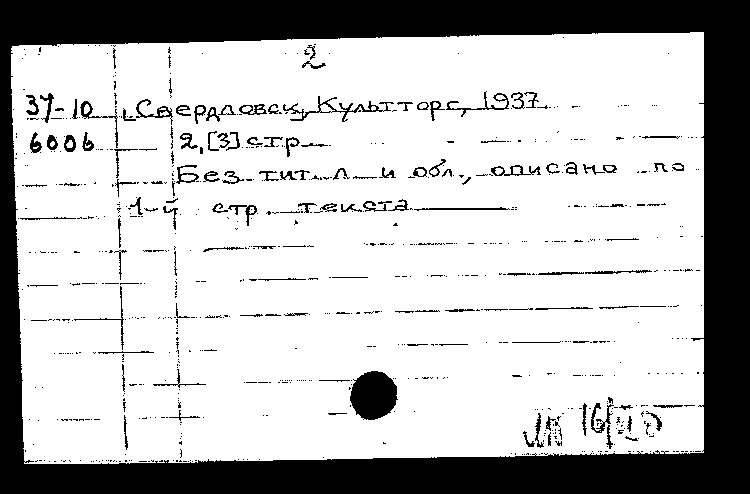 2
37-10 [Свердловск], Культторг, 1937
6006 2,[3] стр.
Без тит. л. и обл., описано по
1-й стр. текста
16/VI